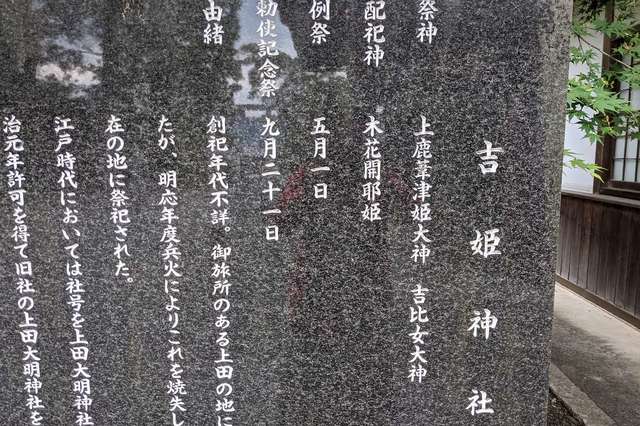 吉姫神社
祭神 上鹿葦津姫大神 吉比女大神
配祀神 木花開耶姫
例祭 五月一日
勅使記念祭 九月二十一日
由緒 創祀年代不詳。御旅所のある上田の地に
たが、明応年度兵火によりこれを焼失し
在の地に祭祀された。
江戸時代においては社号を上田大明神社
治元年許可を得て旧社の上田大明神社を